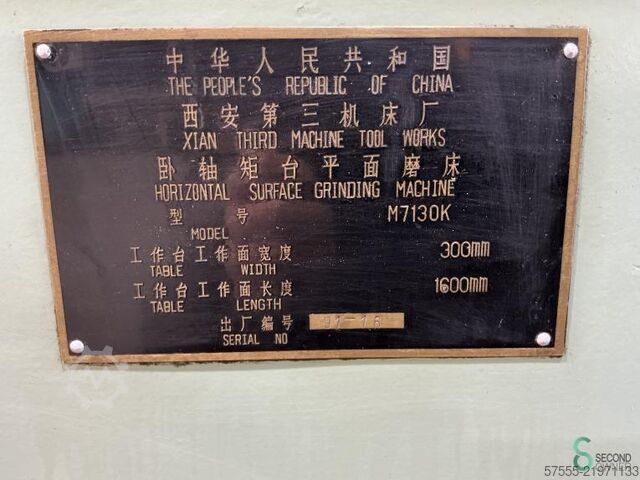 中华人民共和国
THE PEOPLE'S REPUBLIC OF CHINA
西安第三机床厂
XIAN THIRD MACHINE TOOL WORKS
卧轴矩台平面磨床
HORIZONTAL SURFACE GRINDING MACHINE
型号 M7130K
MODEL
工作台工作面宽度 300mm
TABLE WIDTH
工作台工作面长度 1600mm
TABLE LENGTH
出厂编号
SERIAL NO
SECOND
57555-21971133